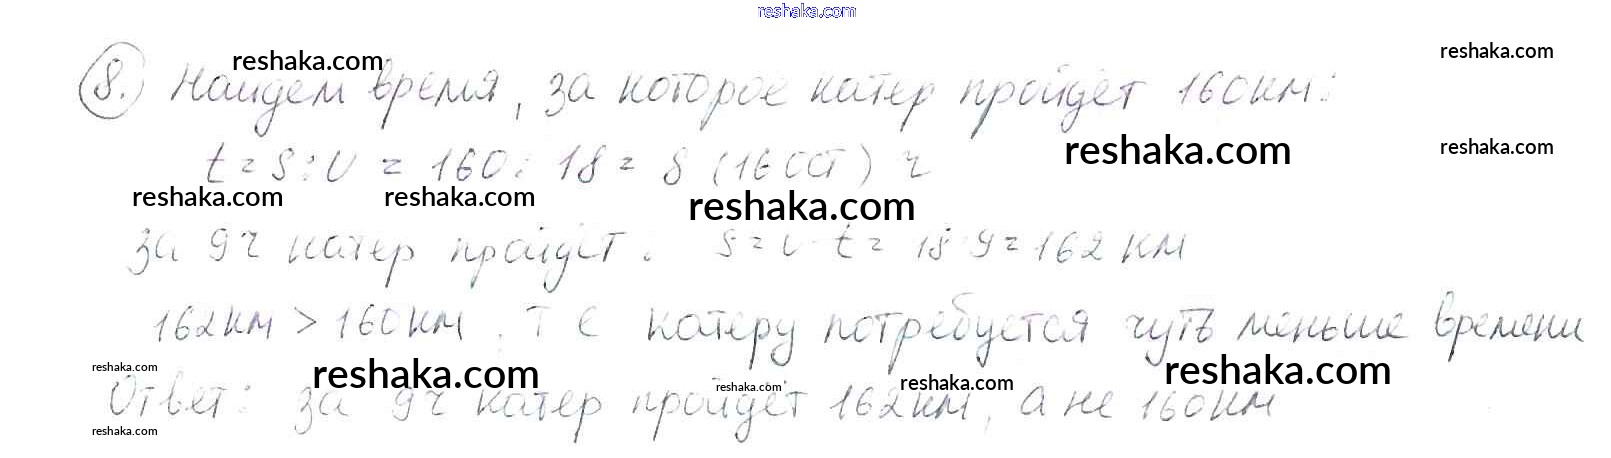 reshaka.com
8. Найдем время, за которое катер пройдёт 160 км:
reshaka.com reshaka.com
t = S : V = 160 : 18 = 8 (16 ост) ч
reshaka.com reshaka.com
reshaka.com reshaka.com reshaka.com
за 9 ч катер пройдёт: S = V · t = 18 · 9 = 162 км
162 км > 160 км, т е катеру потребуется чуть меньше времени
reshaka.com reshaka.com reshaka.com reshaka.com reshaka.com
Ответ: за 9ч катер пройдёт 162 км, а не 160 км
reshaka.com